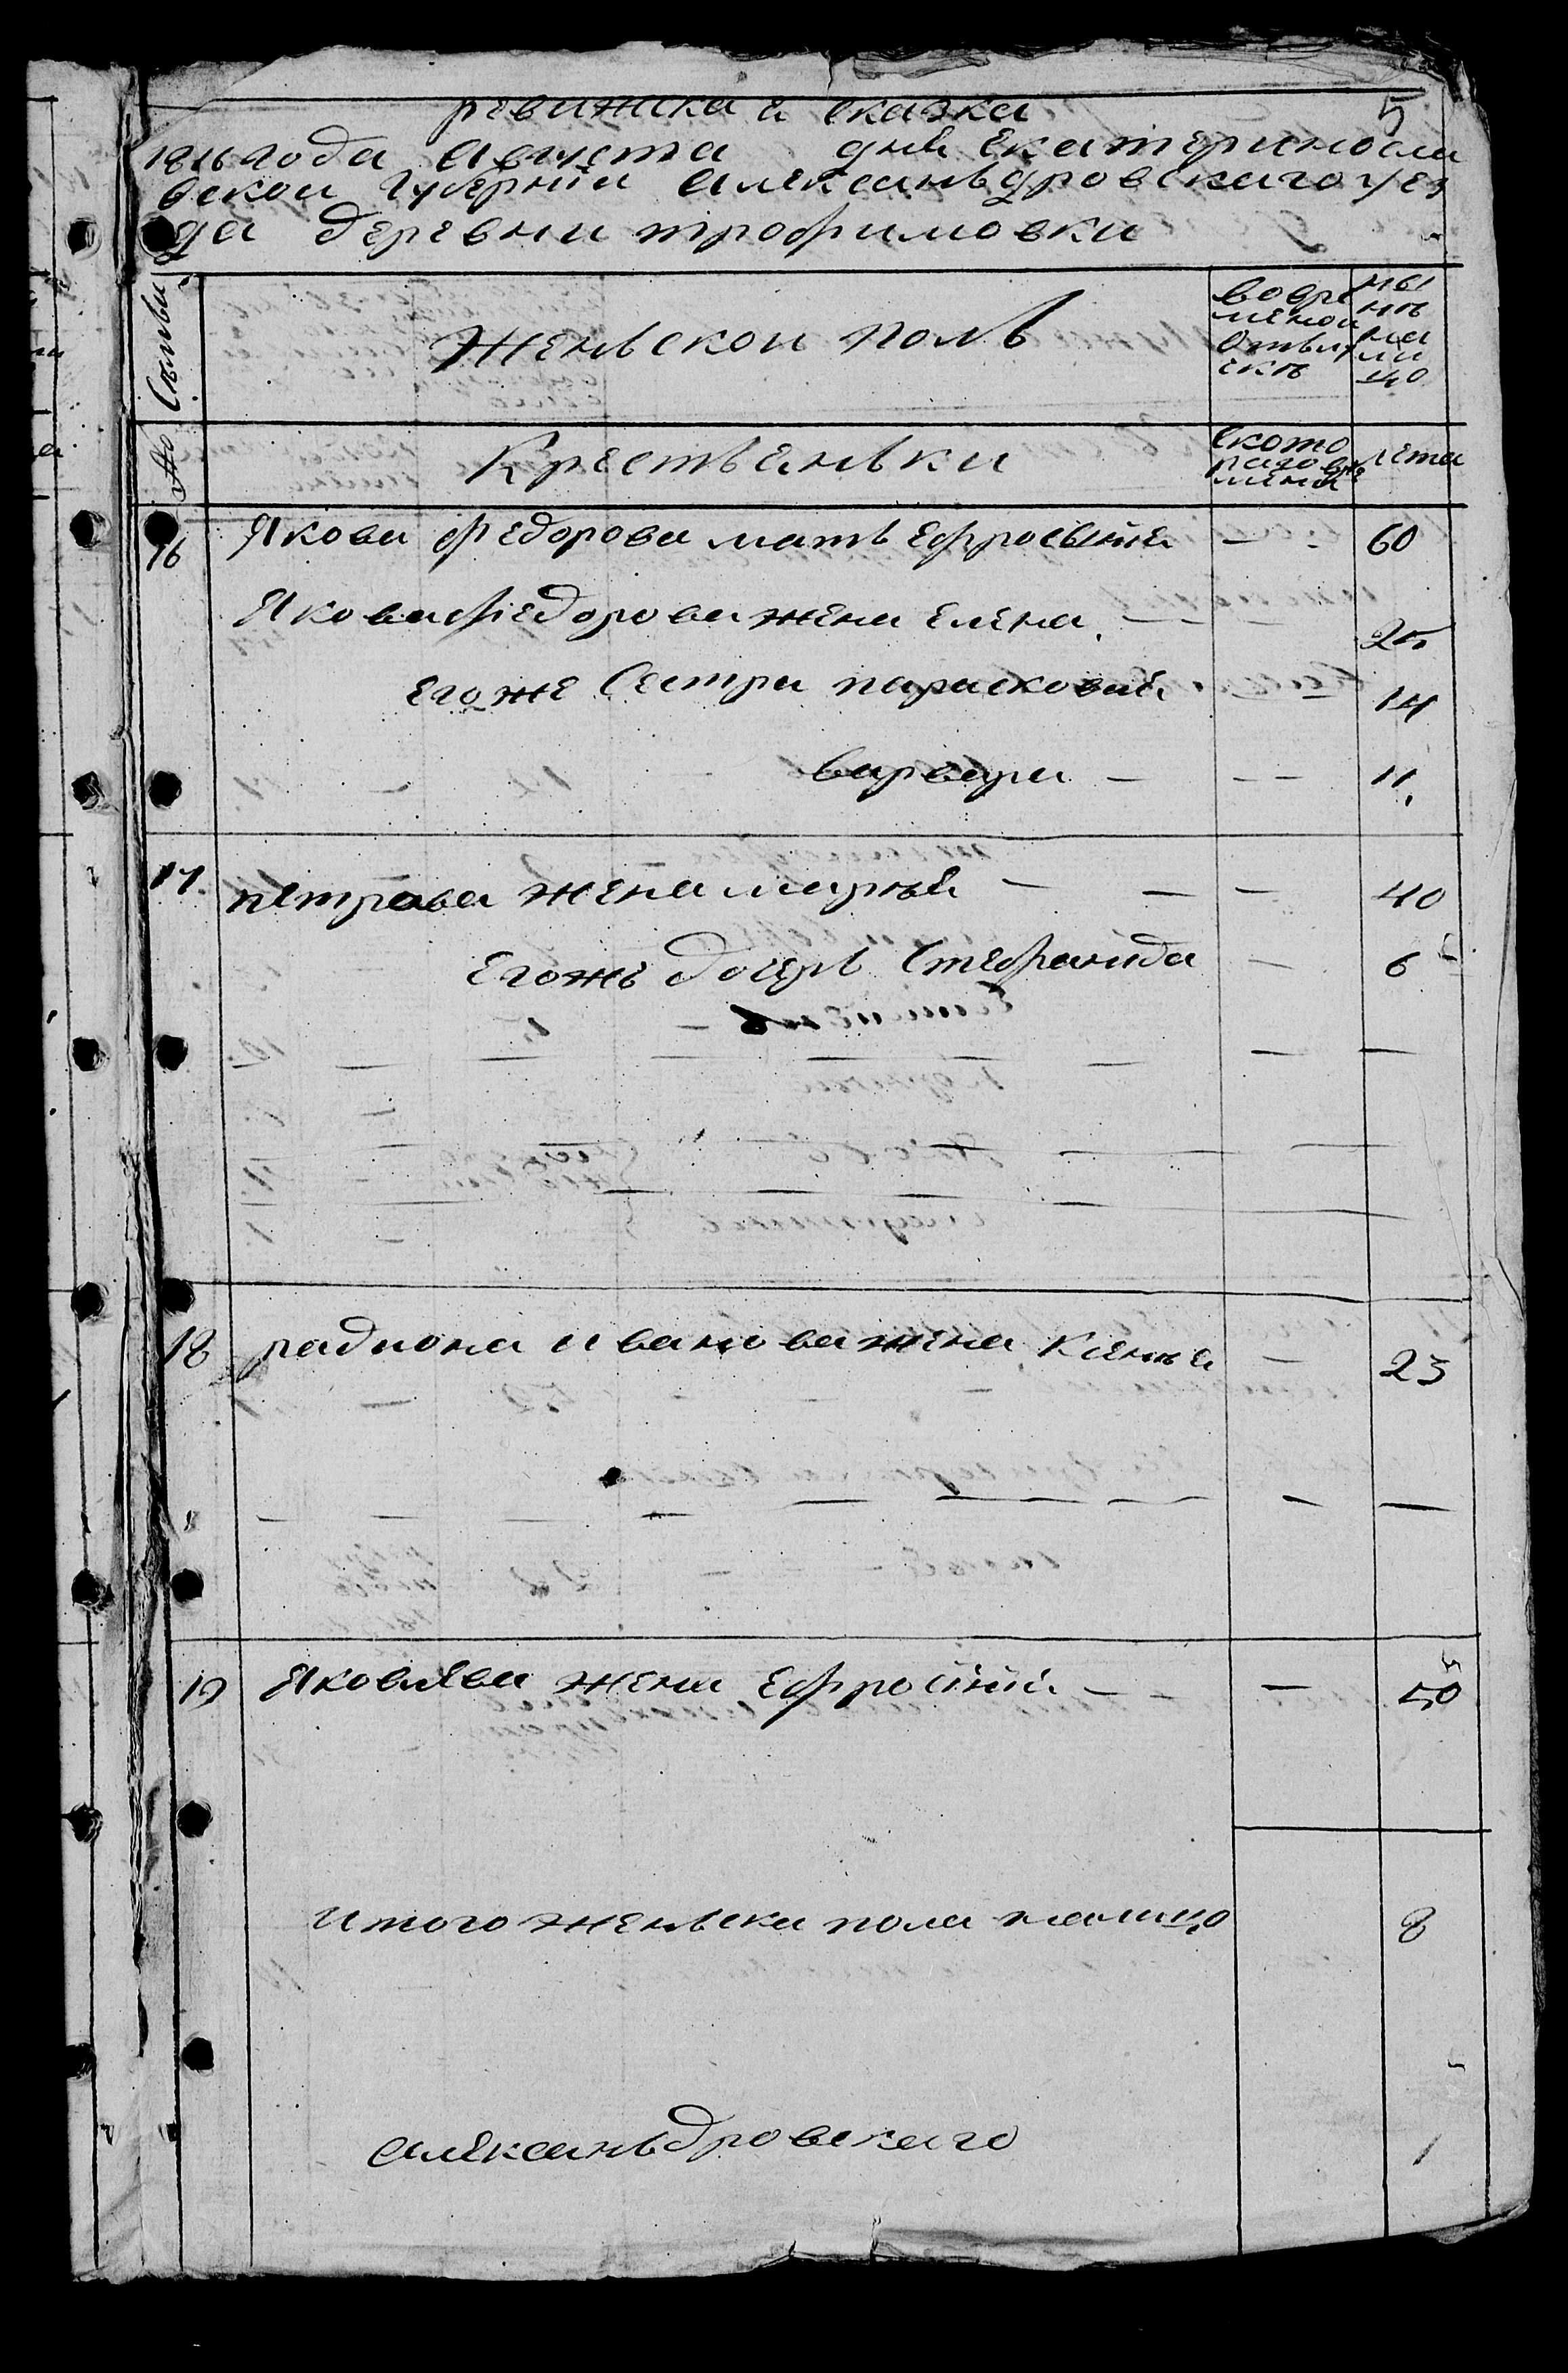 5
ревижска а сказка
1816 года августа дня екатериносла
вской губернии алексаньдровскаго уез
да деревни трофимовки
№ Сѣмьи
Женьской полъ
во вре
меной
отълу
скѣ
ны
нѣ
на
ли
цо
Крестьяньки
Ското
раго вре
мени
лета
16 Якова федорова мать ефросиния — 60
Якова федорова жена елена — 25
его же Сестра парасковия 14
варвара — — — 11
17 петрова жена мария — — — 40
его жъ дочерь Стефанида — 6
18 радиона иванова жена Ксения — 23
19 Яковлева жена ефросиния — — — 50
итого женьска пола налицо 8
алексаньдровскаго